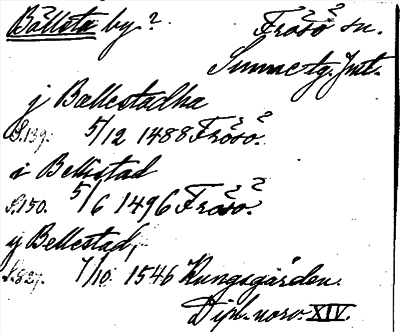 Bällsta by? Frösö sn.
Sunne tg. Jmt.
j Bællestadha
S.139. 5/12 1488 Frösö.
i Bellistad
S.150. 5/6 1496 Frösö.
ij Bellestad,
S.827. 7/10. 1546 Kungsgården.
Dipl. norv. XIV.